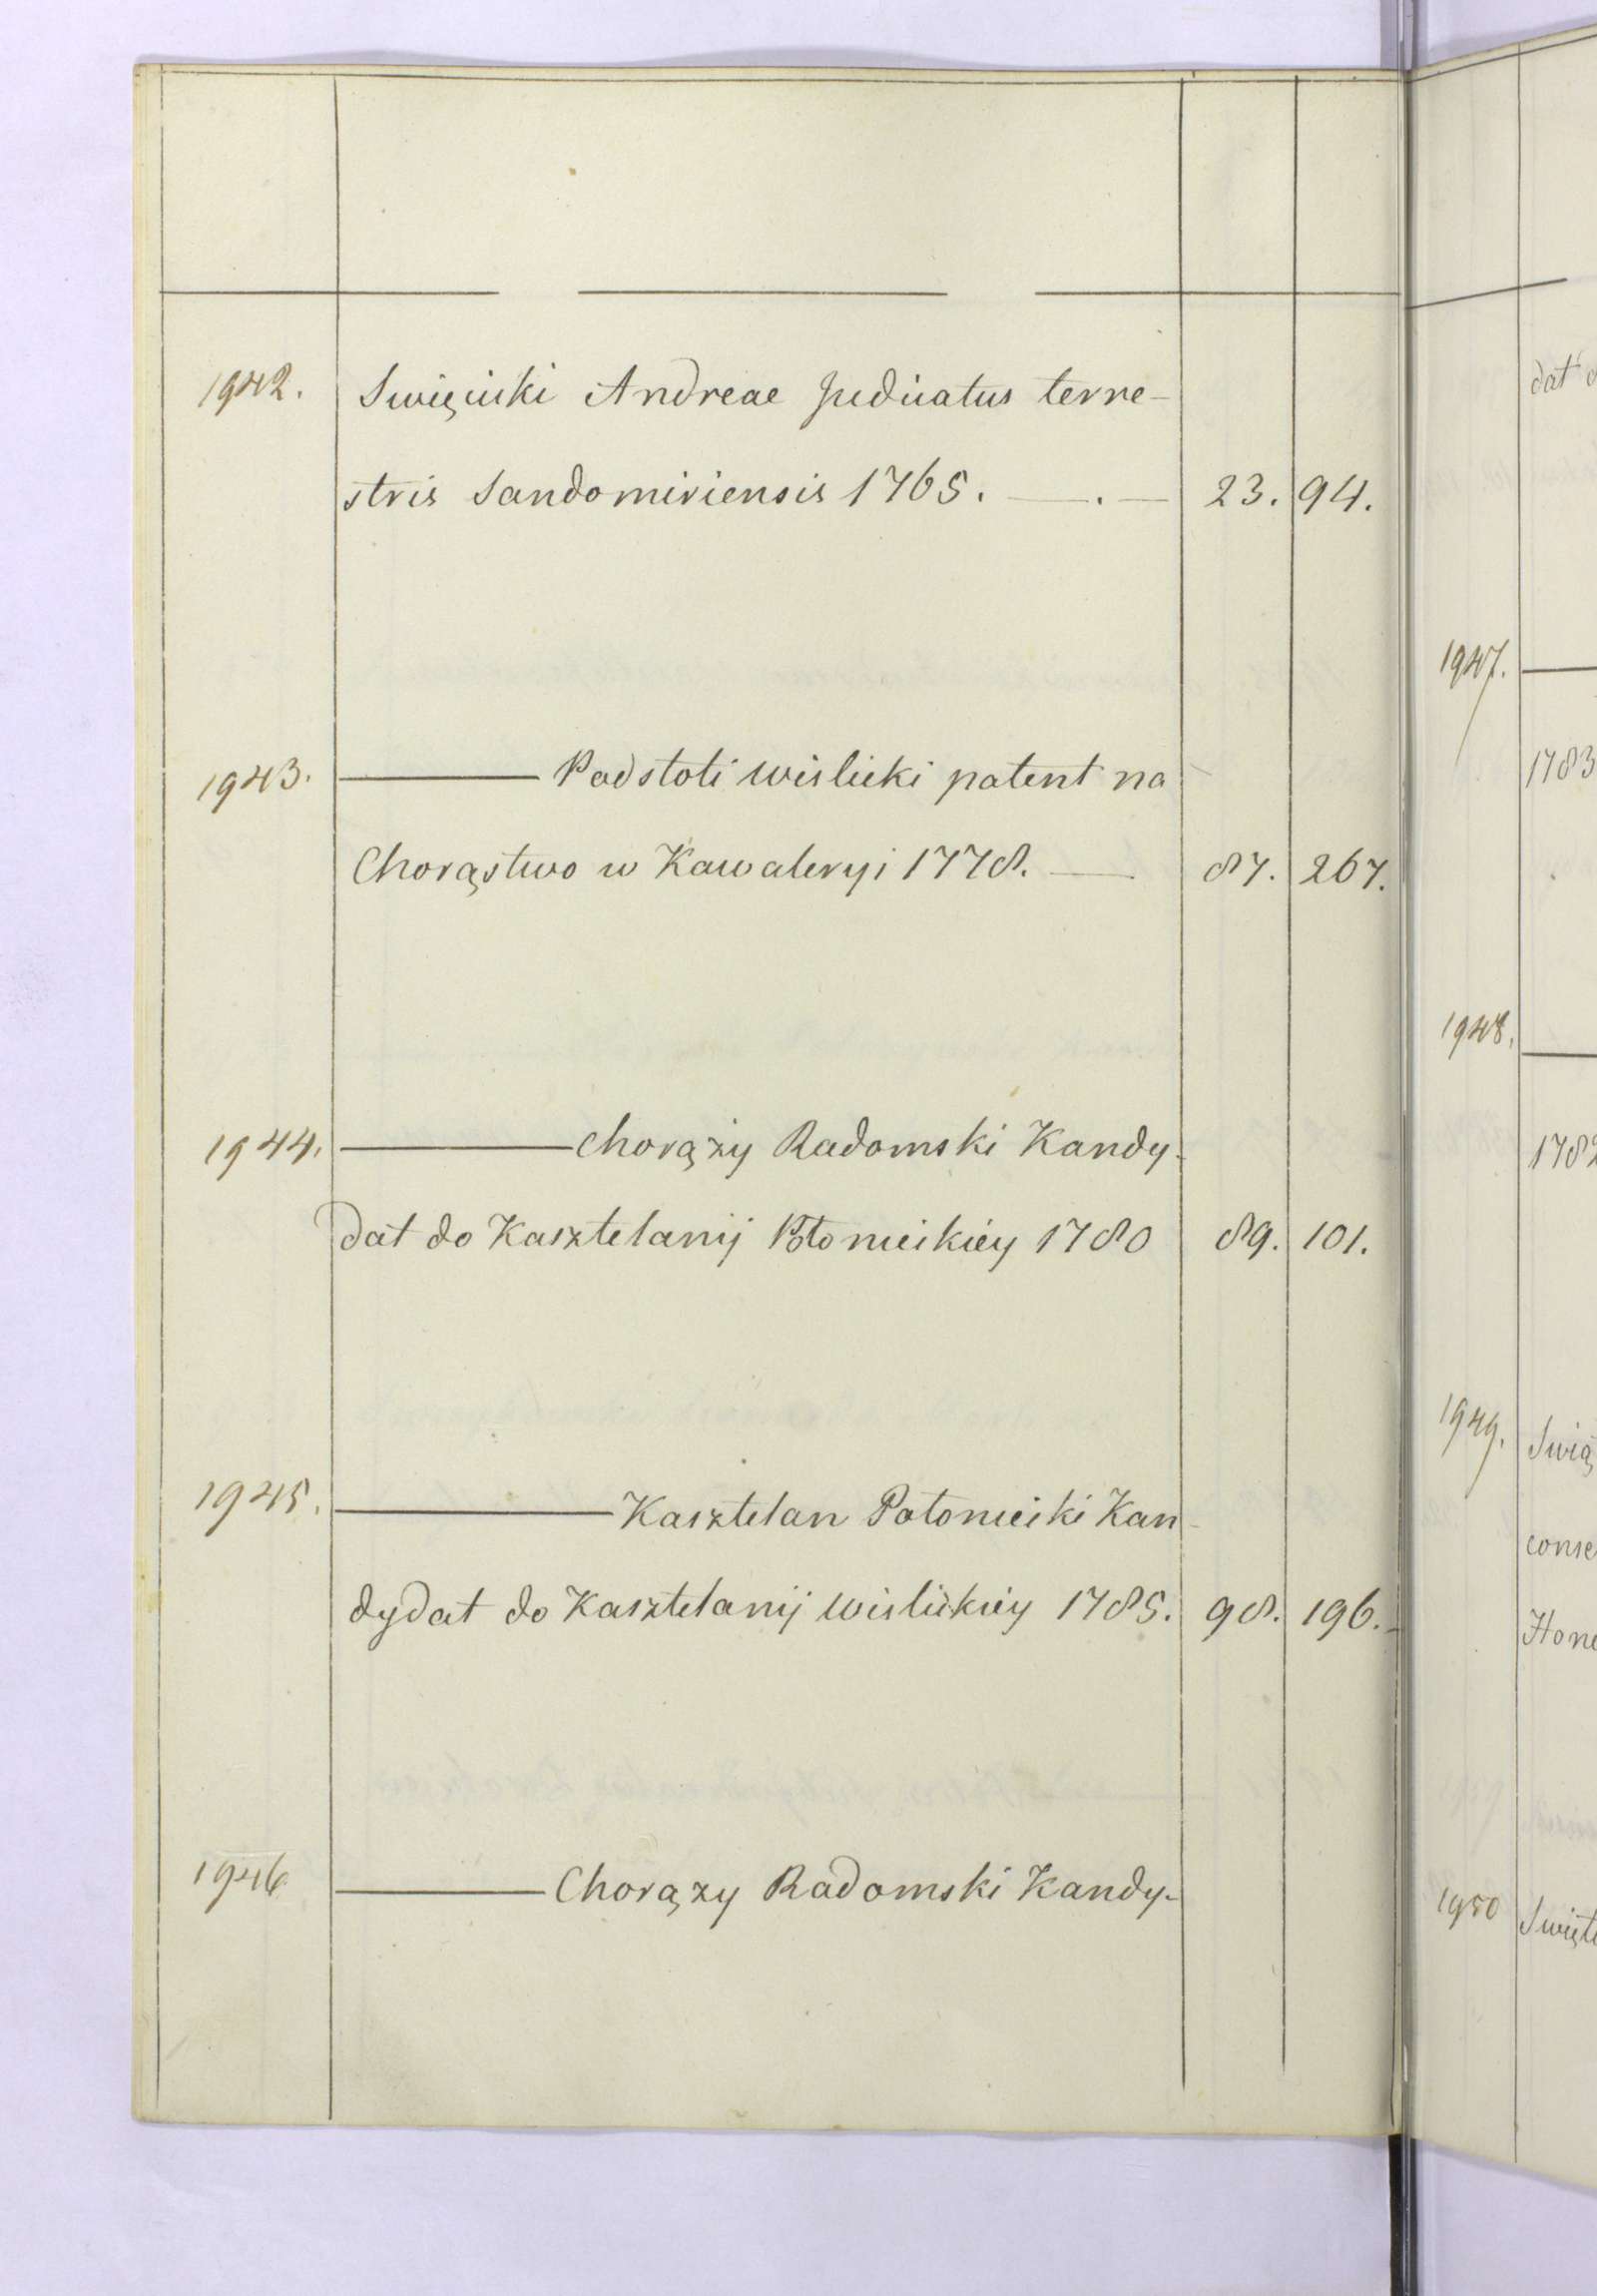 1942. Swięcicki Andreae Judicatus terre-
stris Sandomiriensis 1765. 23. 94.
1943. Podstoli wislicki patent na
Chorąstwo w Kawaleryi 1778. 87. 267.
1944. Chorąży Radomski Kandy-
dat do Kasztelanij Połonieckiéy 1780 89. 101.
1945. Kasztelan Połoniecki Kan-
dydat do Kasztelanij wislickiéy 1785. 98. 196.
1946 Chorązy Radomski Kandy-
dat
1947.
1783
1948.
1782
1949. Swią
conse
Hone
1950 Swięt